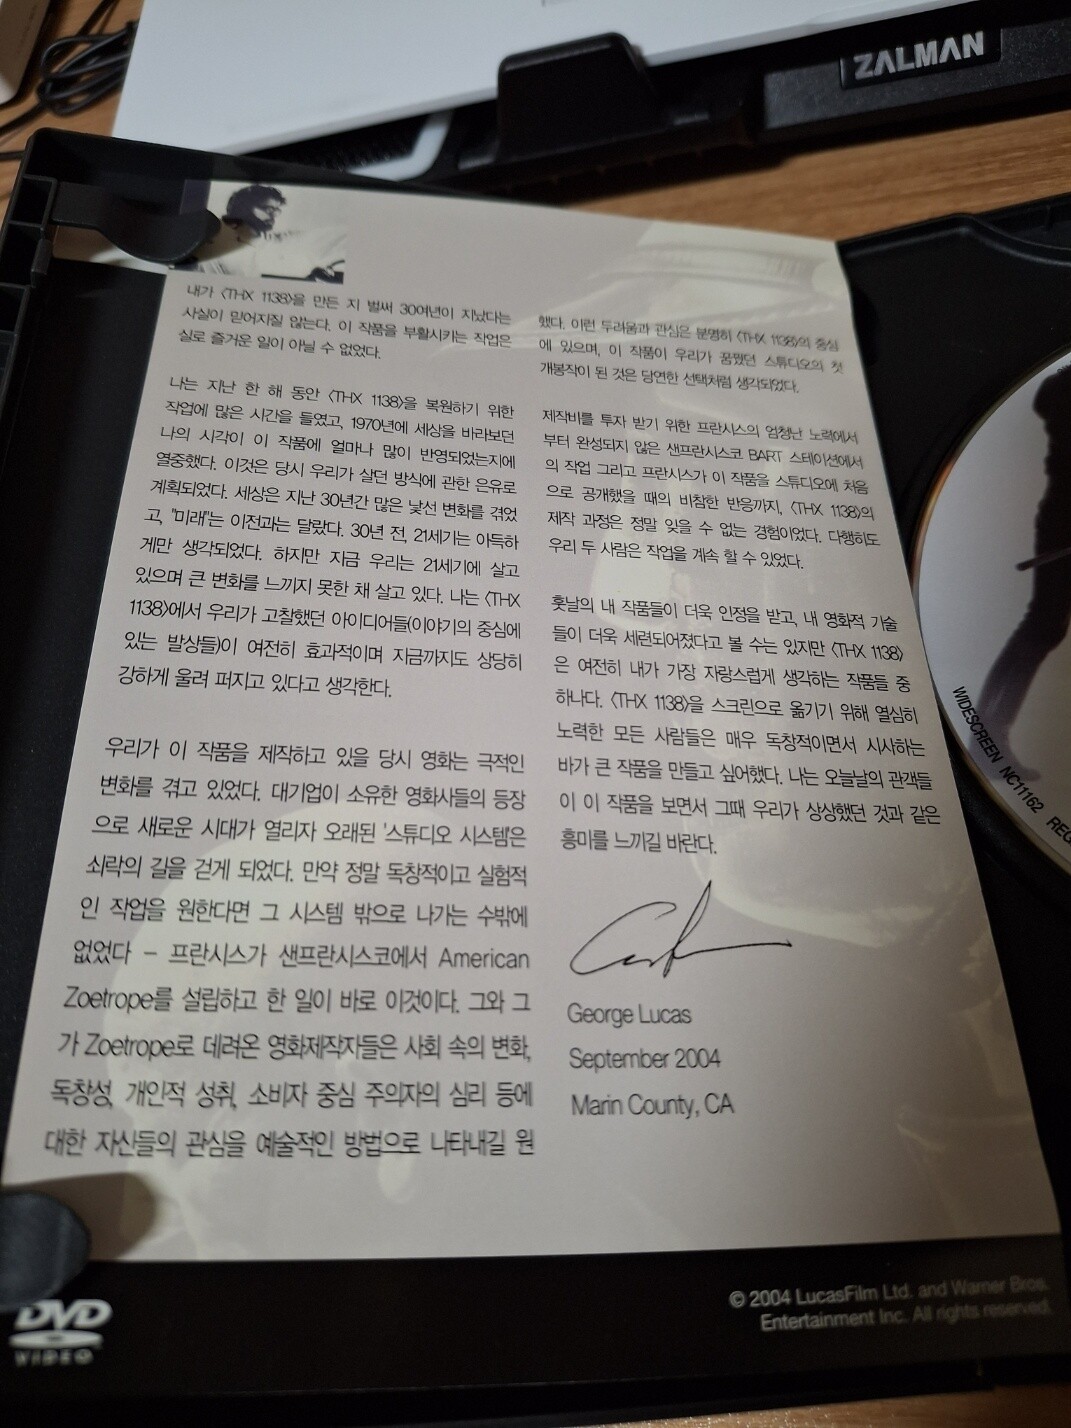 ZALMAN
내가 〈THX 1138〉을 만든 지 벌써 30여년이 지났다는
사실이 믿어지질 않는다. 이 작품을 부활시키는 작업은
실로 즐거운 일이 아닐 수 없었다.
나는 지난 한 해 동안 〈THX 1138〉을 복원하기 위한
작업에 많은 시간을 들였고, 1970년에 세상을 바라보던
나의 시각이 이 작품에 얼마나 많이 반영되었는지에
열중했다. 이것은 당시 우리가 살던 방식에 관한 은유로
계획되었다. 세상은 지난 30년간 많은 낯선 변화를 겪었
고, "미래"는 이전과는 달랐다. 30년 전, 21세기는 아득하
게만 생각되었다. 하지만 지금 우리는 21세기에 살고
있으며 큰 변화를 느끼지 못한 채 살고 있다. 나는 〈THX
1138〉에서 우리가 고찰했던 아이디어들(이야기의 중심에
있는 발상들)이 여전히 효과적이며 지금까지도 상당히
강하게 울려 퍼지고 있다고 생각한다.
우리가 이 작품을 제작하고 있을 당시 영화는 극적인
변화를 겪고 있었다. 대기업이 소유한 영화사들의 등장
으로 새로운 시대가 열리자 오래된 '스튜디오 시스템'은
쇠락의 길을 걷게 되었다. 만약 정말 독창적이고 실험적
인 작업을 원한다면 그 시스템 밖으로 나가는 수밖에
없었다 – 프란시스가 샌프란시스코에서 American
Zoetrope를 설립하고 한 일이 바로 이것이다. 그와 그
가 Zoetrope로 데려온 영화제작자들은 사회 속의 변화,
독창성, 개인적 성취, 소비자 중심 주의자의 심리 등에
대한 자신들의 관심을 예술적인 방법으로 나타내길 원
했다. 이런 두려움과 관심은 분명히 〈THX 1138〉의 중심
에 있으며, 이 작품이 우리가 꿈꿨던 스튜디오의 첫
개봉작이 된 것은 당연한 선택처럼 생각되었다.
제작비를 투자 받기 위한 프란시스의 엄청난 노력에서
부터 완성되지 않은 샌프란시스코 BART 스테이션에서
의 작업 그리고 프란시스가 이 작품을 스튜디오에 처음
으로 공개했을 때의 비참한 반응까지, 〈THX 1138〉의
제작 과정은 정말 잊을 수 없는 경험이었다. 다행히도
우리 두 사람은 작업을 계속 할 수 있었다.
훗날의 내 작품들이 더욱 인정을 받고, 내 영화적 기술
들이 더욱 세련되어졌다고 볼 수는 있지만 〈THX 1138〉
은 여전히 내가 가장 자랑스럽게 생각하는 작품들 중
하나다. 〈THX 1138〉을 스크린으로 옮기기 위해 열심히
노력한 모든 사람들은 매우 독창적이면서 시사하는
바가 큰 작품을 만들고 싶어했다. 나는 오늘날의 관객들
이 이 작품을 보면서 그때 우리가 상상했던 것과 같은
흥미를 느끼길 바란다.
George Lucas
September 2004
Marin County, CA
WIDESCREEN NC11162 REG
DVD
VIDEO
© 2004 LucasFilm Ltd. and Warner Bros.
Entertainment Inc. All rights reserved.